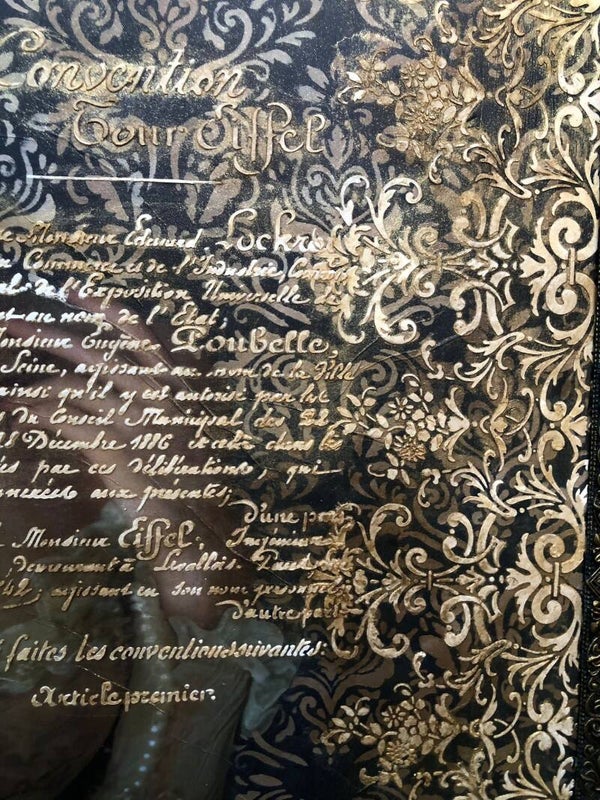 Convention
Tour Eiffel
Monsieur Edouard Lockroy
Commerce et de l'Industrie,
de l'Exposition Universelle de
et au nom de l'Etat;
Monsieur Eugène Poubelle,
Seine, agissant au nom de la Ville
ainsi qu'il y est autorisé par le
du Conseil Municipal des
Décembre 1886 et dans les
par ces délibérations, qui
aux présentes;
d'une part
Monsieur Eiffel, Ingénieur
demeurant à Levallois-Perret
42; agissant en son nom personnel
d'autre part
faites les conventions suivantes:
Article premier.